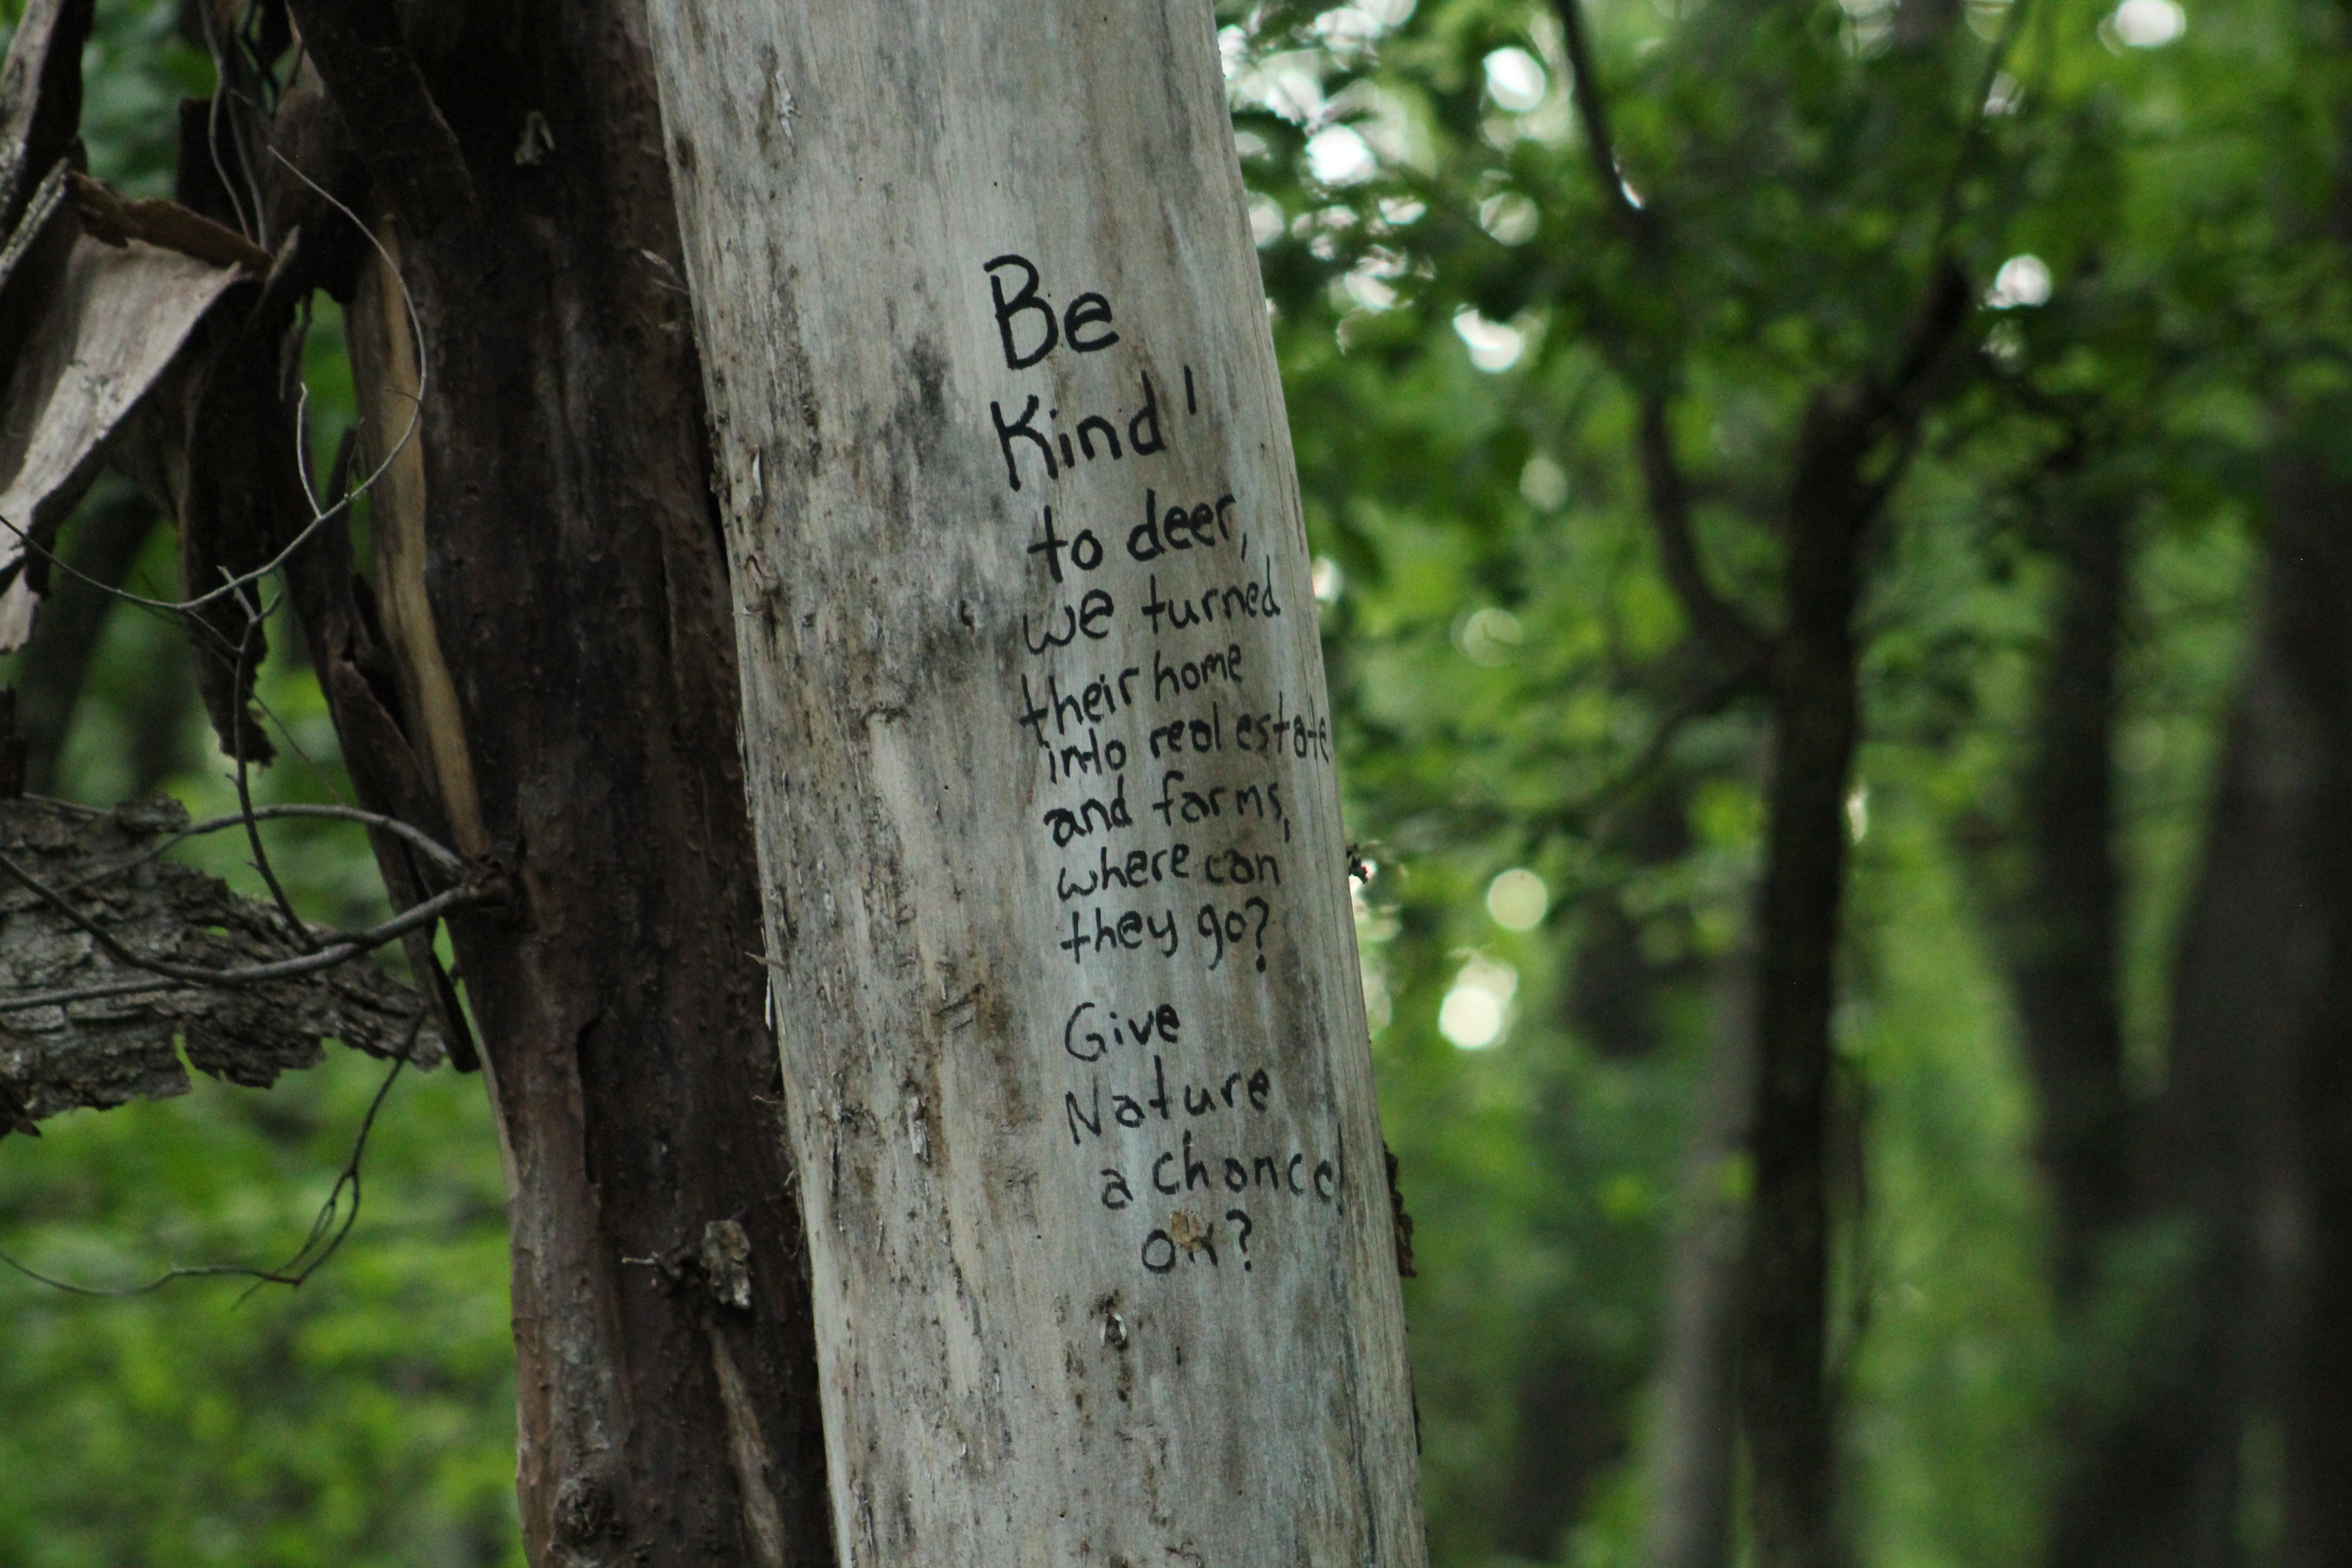 Be
Kind'
to deer,
we turned
their home
into real estate
and farms,
where can
they go?
Give
Nature
a chance
ok?